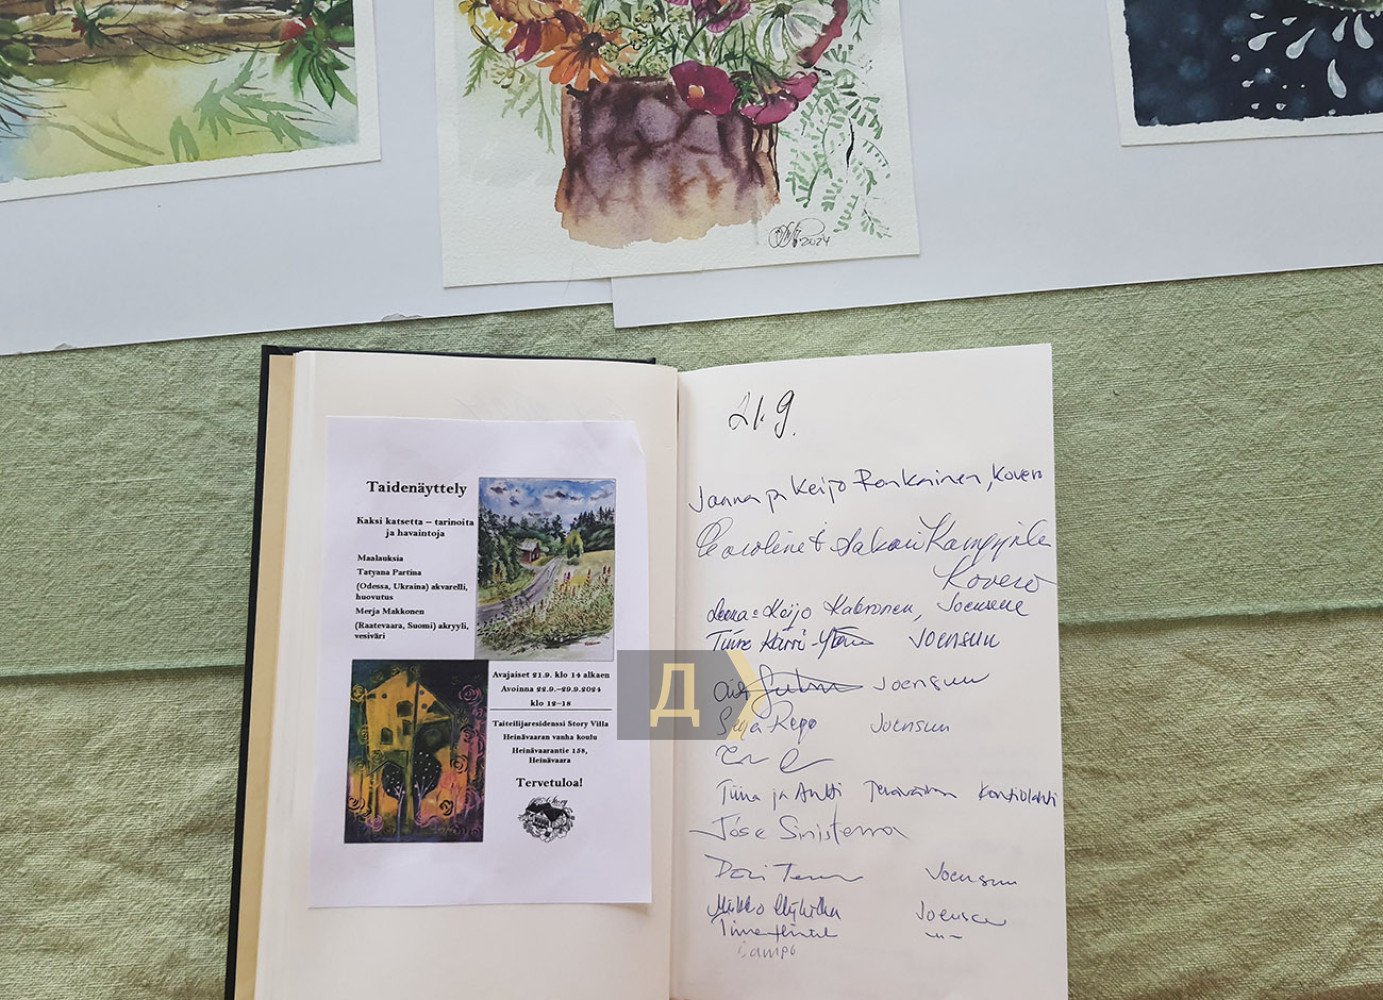 2024
21.9.
Taidenäyttely
Kaksi katsetta – tarinoita
ja havaintoja
Maalauksia
Tatyana Partina
(Odessa, Ukraina) akvarelli,
huovutus
Merja Makkonen
(Raatevaara, Suomi) akryyli,
vesiväri
Avajaiset 21.9. klo 14 alkaen
Avoinna 22.9.–29.9.2024
klo 12–18
Taiteilijaresidenssi Story Villa
Heinävaaran vanha koulu
Heinävaarantie 158,
Heinävaara
Tervetuloa!
Д
Janna ja Keijo Ronkainen, Kovero
Caroline &
Kovero
Leena & Keijo Kahronen, Joensuu
Joensuu
Joensuu
Joensuu
Tiina ja Antti Kontiolahti
Jose Sinisterra
Joensuu
Mikko Joensuu
Sampo